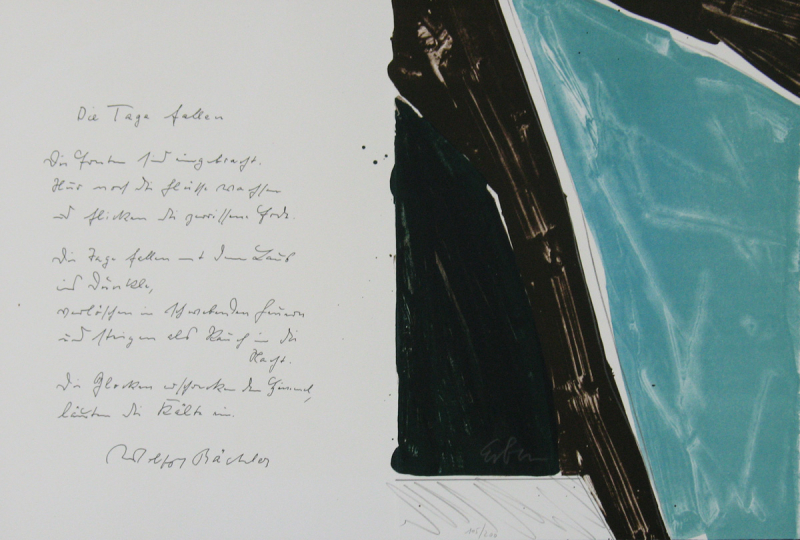 Die Tage fallen
Die Ernten sind eingebracht.
Nur noch die Flüsse wachsen
und flicken die zerrissene Erde.
Die Tage fallen mit dem Laub
ins Dunkle,
verlöschen in schwelenden Feuern
und steigen als Rauch in die
Nacht.
Die Glocken erschrecken den Himmel,
läuten die Kälte ein.
Wolfgang Bächler
Erben